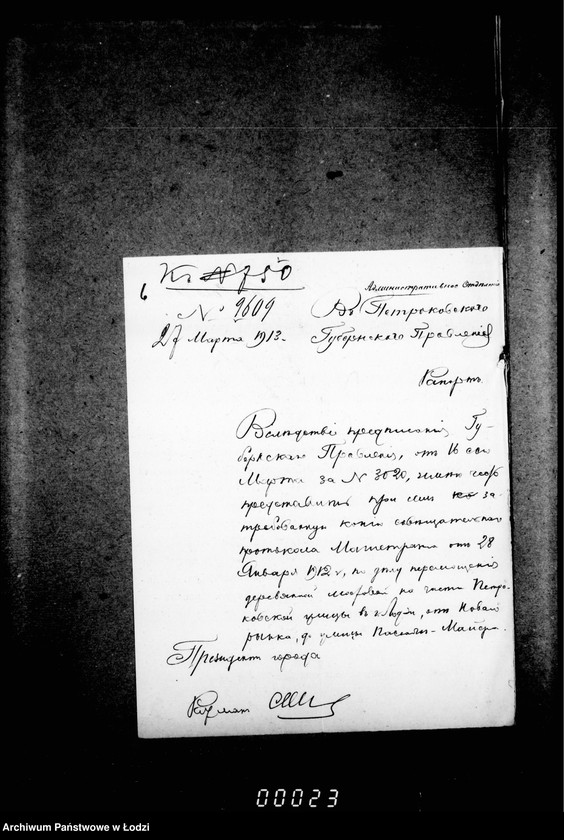 К № 750
6
Административное Отдѣленіе
№ 9609
Въ Петроковское
27 Марта 1913.
Губернское Правленіе
Рапортъ.
Вслѣдствіе предписанія Гу-
бернскаго Правленія, отъ 16 сего
Марта за № 3020, имѣю честь
представить при семъ за-
требованную копію
протокола Магистрата отъ 28
Января 1912 г, по дѣлу перемощенія
деревянной мостовой по части Петро-
ковской улицы въ г. Лодзи, отъ Новаго
рынка, до улицы Пасажъ-Майера.
Президентъ города